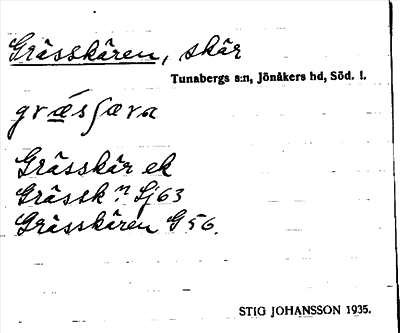 Grässkären, skär
Tunabergs s:n, Jönåkers hd, Söd. l.
græ̀sʃæra
Grässkär ek
Grässk:n Sj63
Grässkären G56.
STIG JOHANSSON 1935.